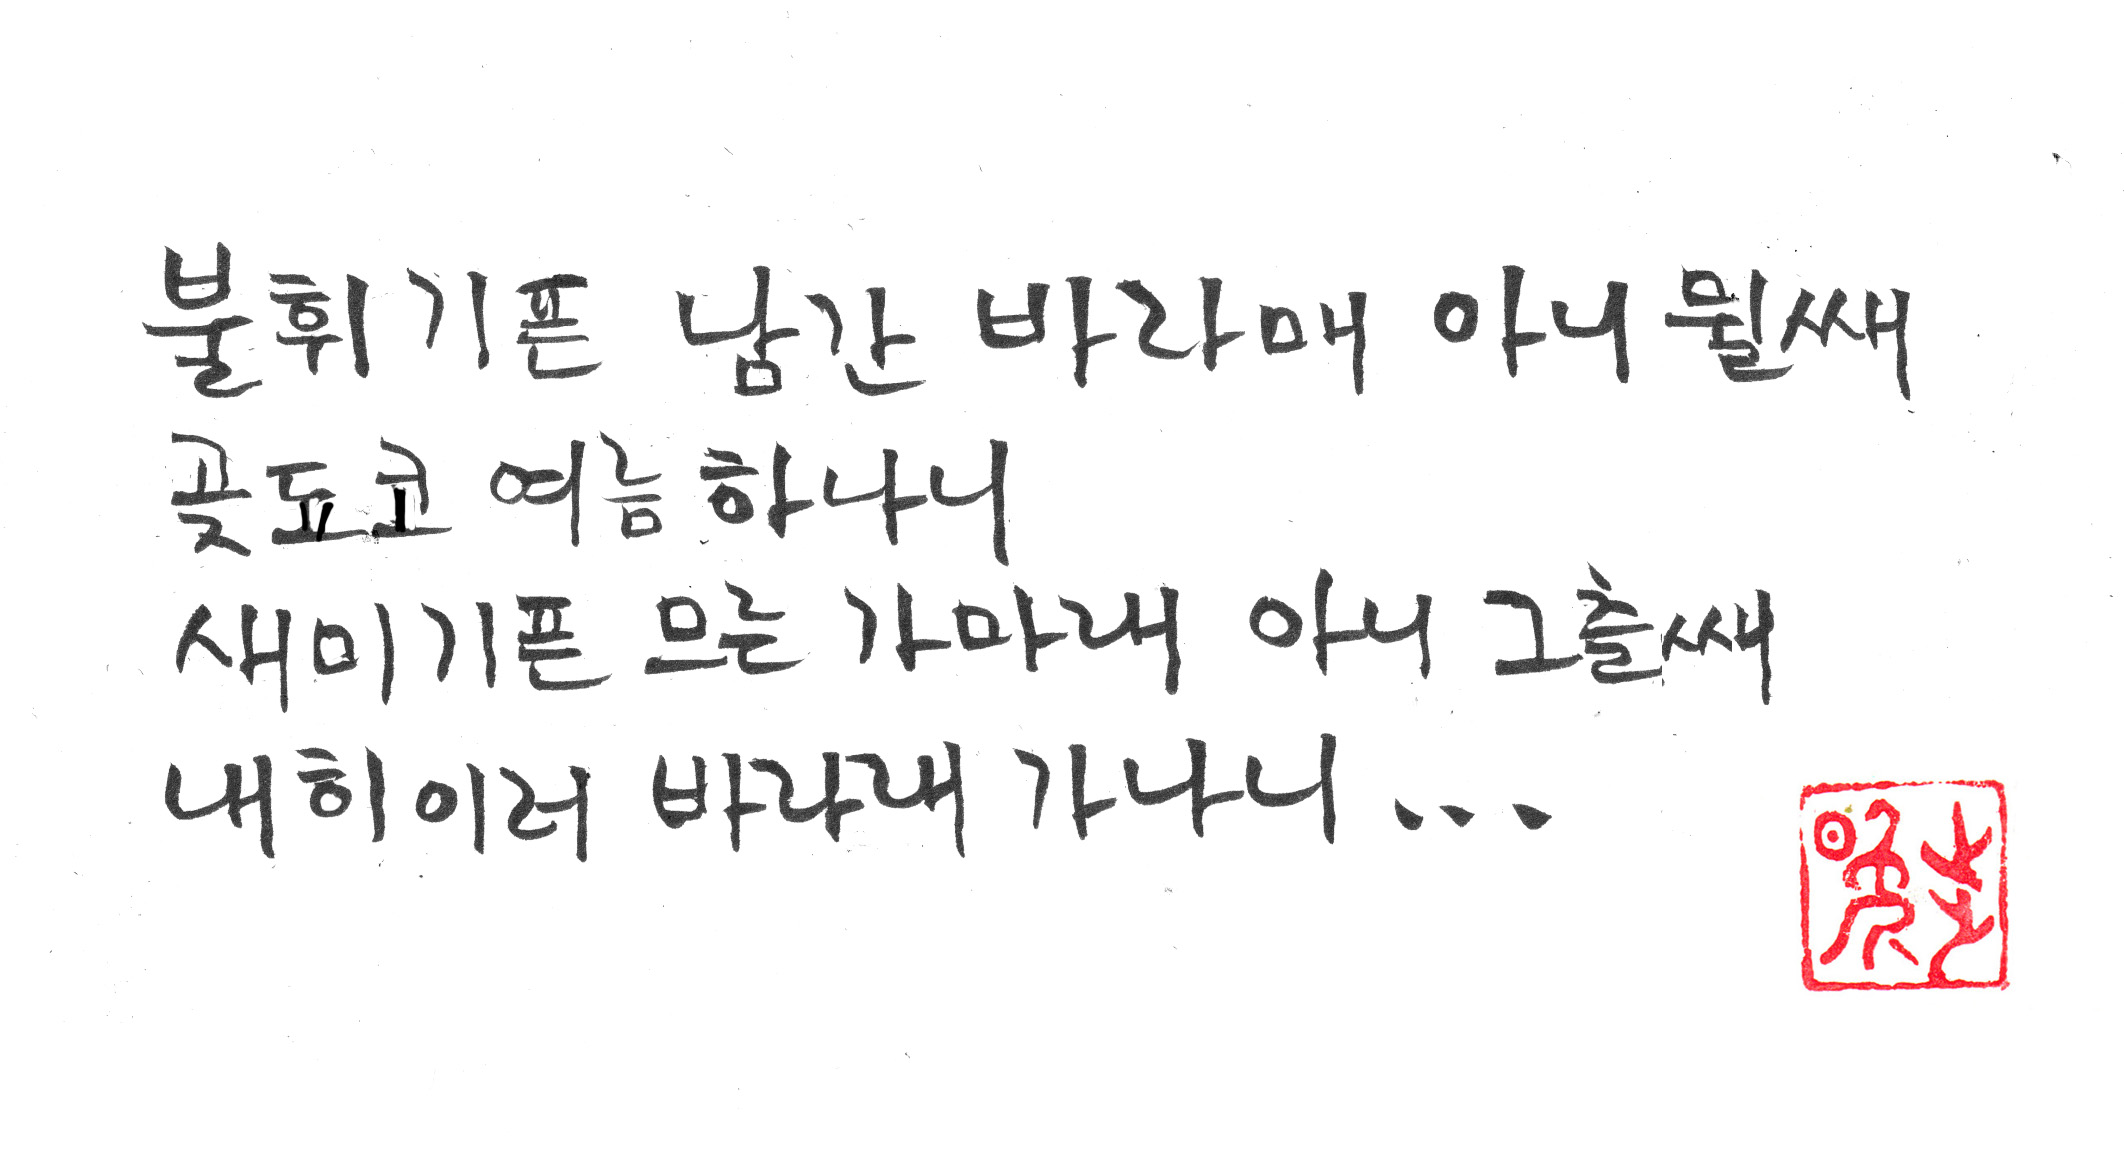 불휘기픈 남간 바라매 아니뮐쌔
곶됴코 여름하나니
새미기픈 므른 가마래 아니 그츨쌔
내히이러 바라래 가나니...